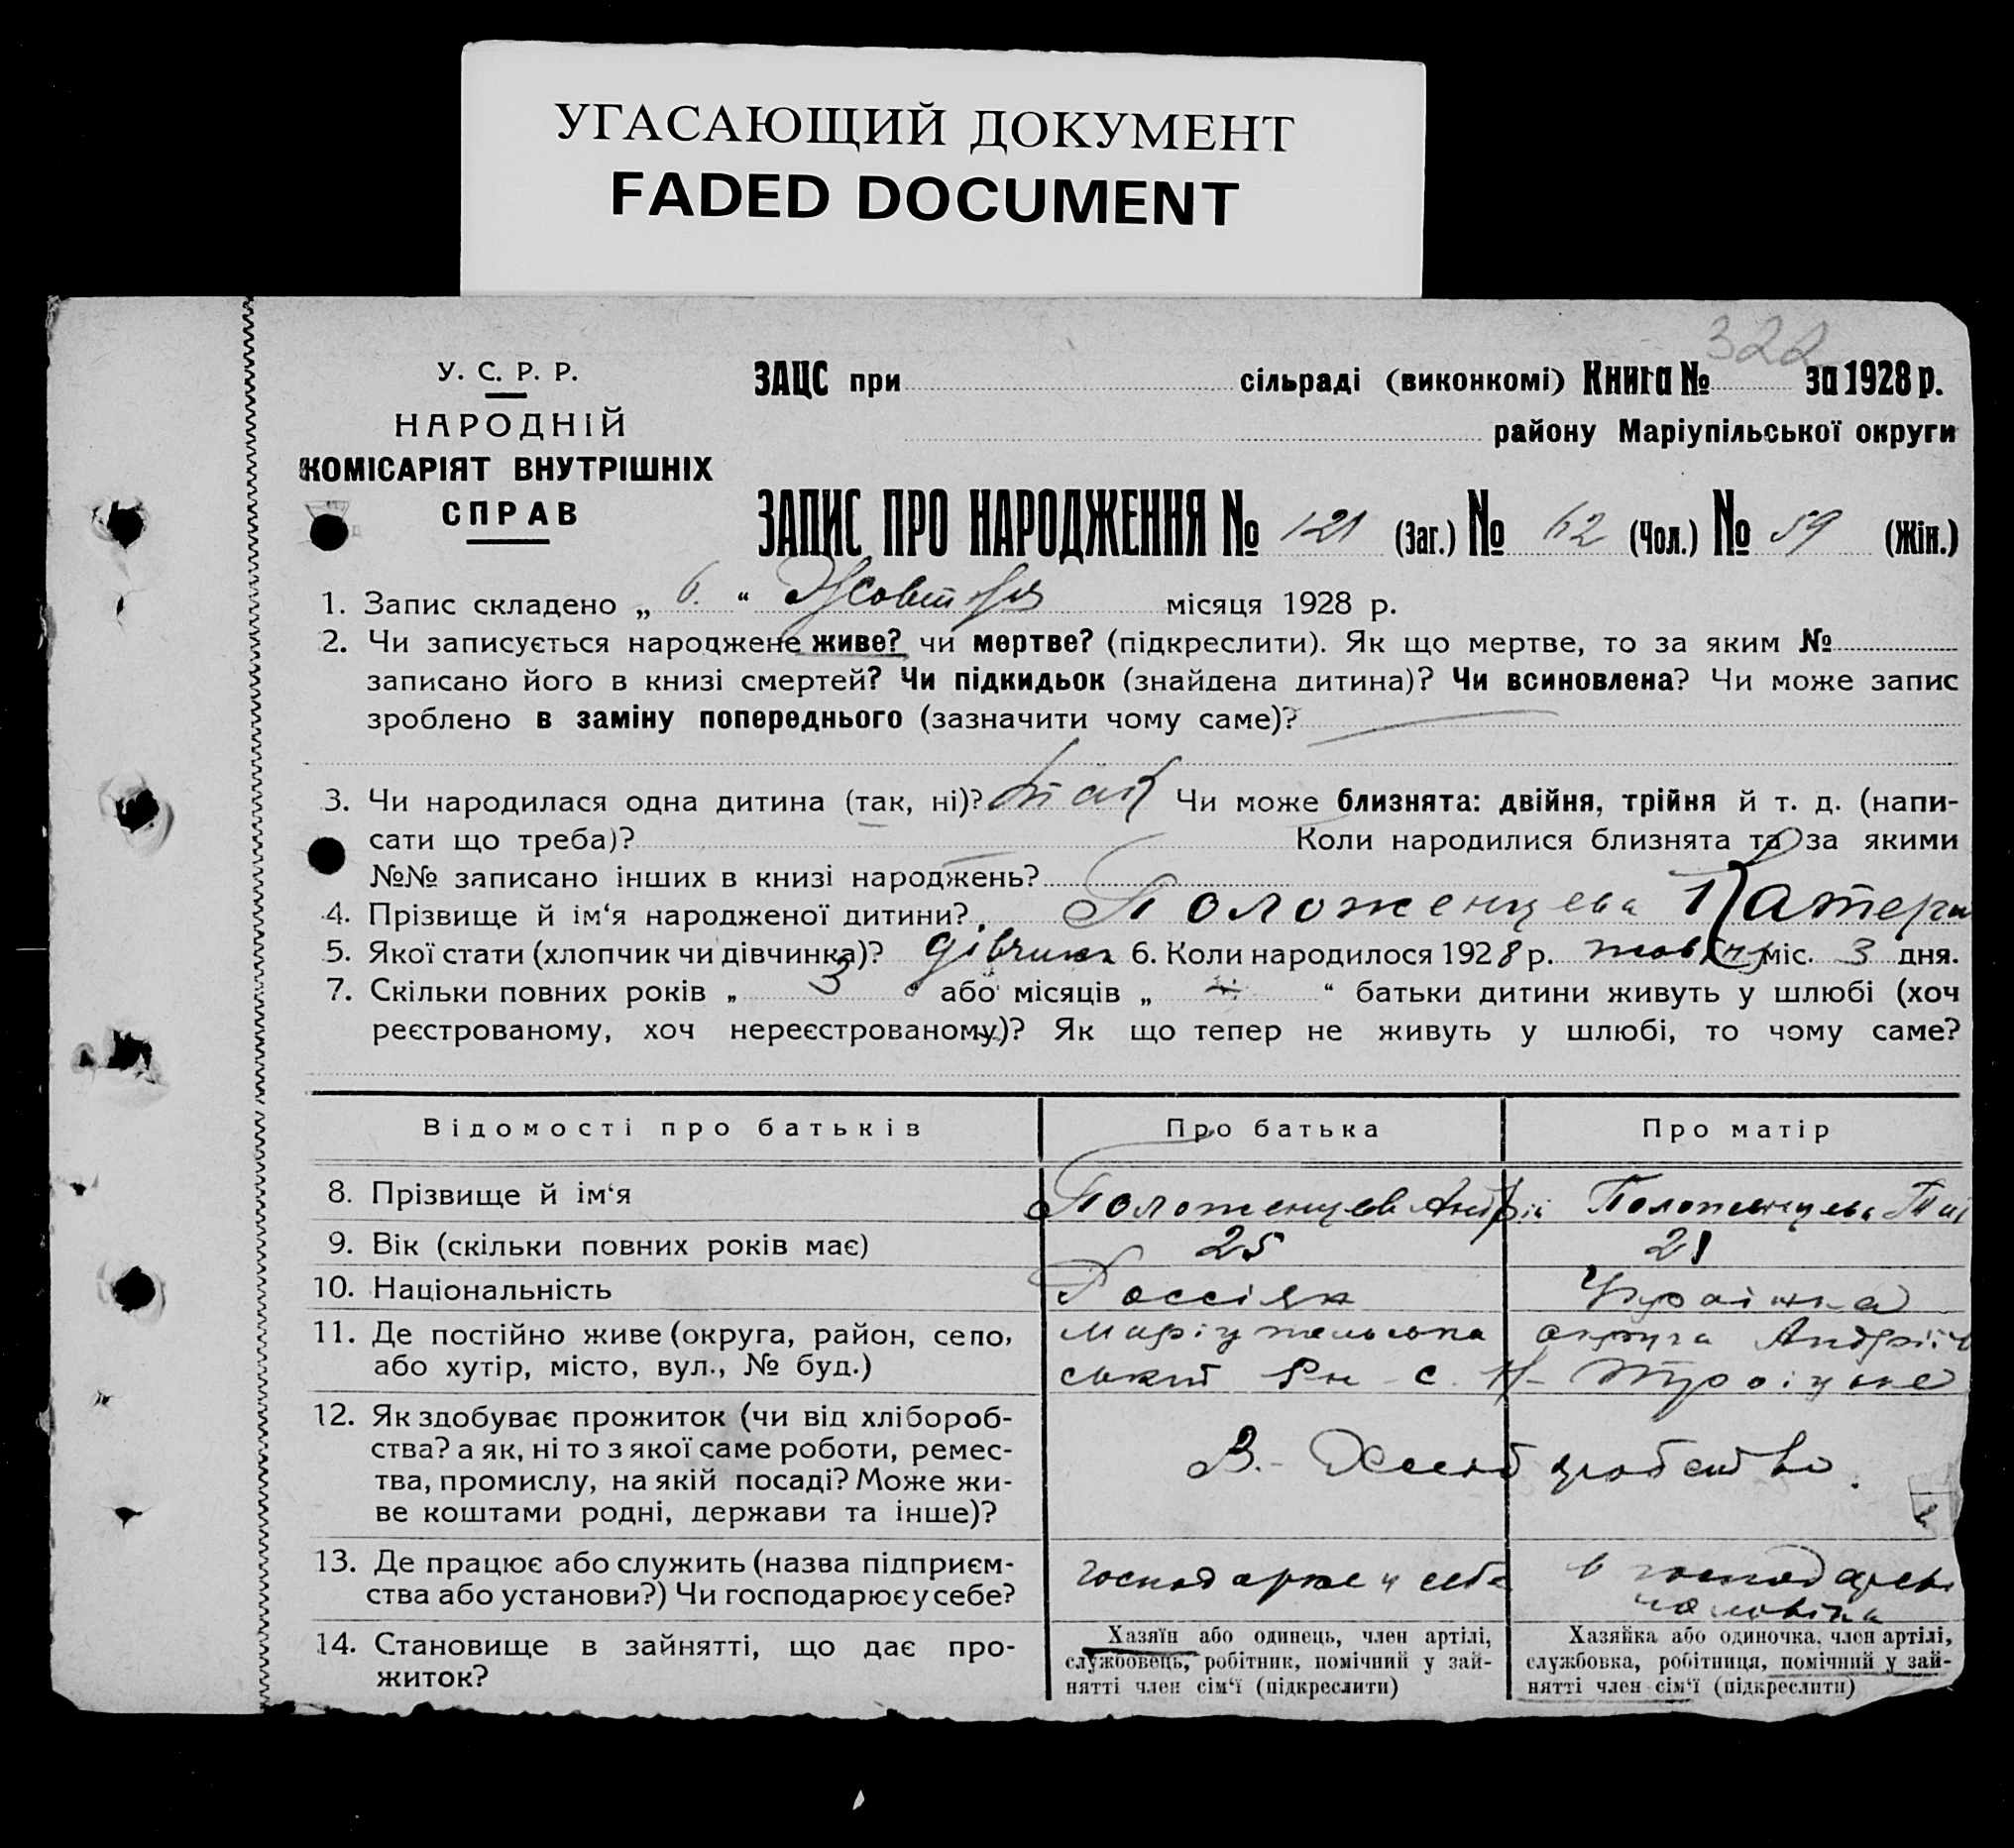 УГАСАЮЩИЙ ДОКУМЕНТ
FADED DOCUMENT
322
У. С. Р. Р.
НАРОДНІЙ
КОМІСАРІЯТ ВНУТРІШНІХ
СПРАВ
ЗАЦС при сільраді (виконкомі) Книга № за 1928 р.
району Маріупільської округи
ЗАПИС ПРО НАРОДЖЕННЯ № 121 (Заг.) № 62 (Чол.) № 59 (Жін.)
1. Запис складено „ 6. “ Жовтня місяця 1928 р.
2. Чи записується народжене живе? чи мертве? (підкреслити). Як що мертве, то за яким №
записано його в книзі смертей? Чи підкидьок (знайдена дитина)? Чи всиновлена? Чи може запис
зроблено в заміну попереднього (зазначити чому саме)?
3. Чи народилася одна дитина (так, ні)? так Чи може близнята: двійня, трійня й т. д. (напи-
сати що треба)? Коли народилися близнята та за якими
№№ записано інших в книзі народжень?
4. Прізвище й ім‘я народженої дитини? Положенцева Катери
5. Якої стати (хлопчик чи дівчинка)? дівчинк 6. Коли народилося 1928 р. жовтн міс. 3 дня.
7. Скільки повних років „ 3 “ або місяців „ “ батьки дитини живуть у шлюбі (хоч
реєстрованому, хоч нереєстрованому)? Як що тепер не живуть у шлюбі, то чому саме?
Відомості про батьків Про батька Про матір
8. Прізвище й ім‘я Положенцев Андрій Положенцева
9. Вік (скільки повних років має) 25 21
10. Національність Россіян Українка
11. Де постійно живе (округа, район, село, Маріупільська округа Андріїв
або хутір, місто, вул., № буд.) ський Рн с. Н-Троіцьке
12. Як здобуває прожиток (чи від хлібороб-
ства? а як, ні то з якої саме роботи, ремес-
тва, промислу, на якій посаді? Може жи-
ве коштами родні, держави та інше)?
В. Хлеборобство.
13. Де працює або служить (назва підприєм-
ства або установи?) Чи господарює у себе?
господарює у себе
в господарстві
чоловіка
14. Становище в зайнятті, що дає про-
житок?
Хазяїн або одинець, член артілі,
службовець, робітник, помічний у зай-
нятті член сім‘ї (підкреслити)
Хазяйка або одиночка, член артілі,
службовка, робітниця, помічний у зай-
нятті член сім‘ї (підкреслити)